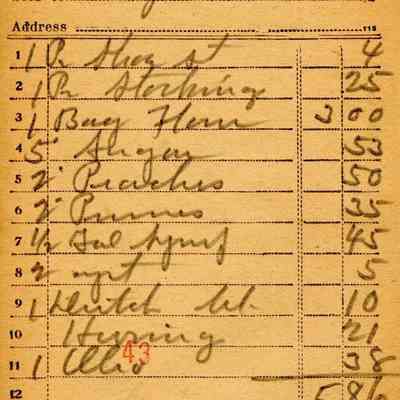 Address
1 1 Pr Shoe st 4
2 1 Pr Stocking 25
3 1 Bag Flour 3 00
4 5 Sugar 53
5 2 Peaches 50
6 2 Prunes 35
7 1/2 Gal Syrup 45
8 2 5
9 1 Dutch 10
10 Herring 21
11 1 Oleo 38
43
12 5 86